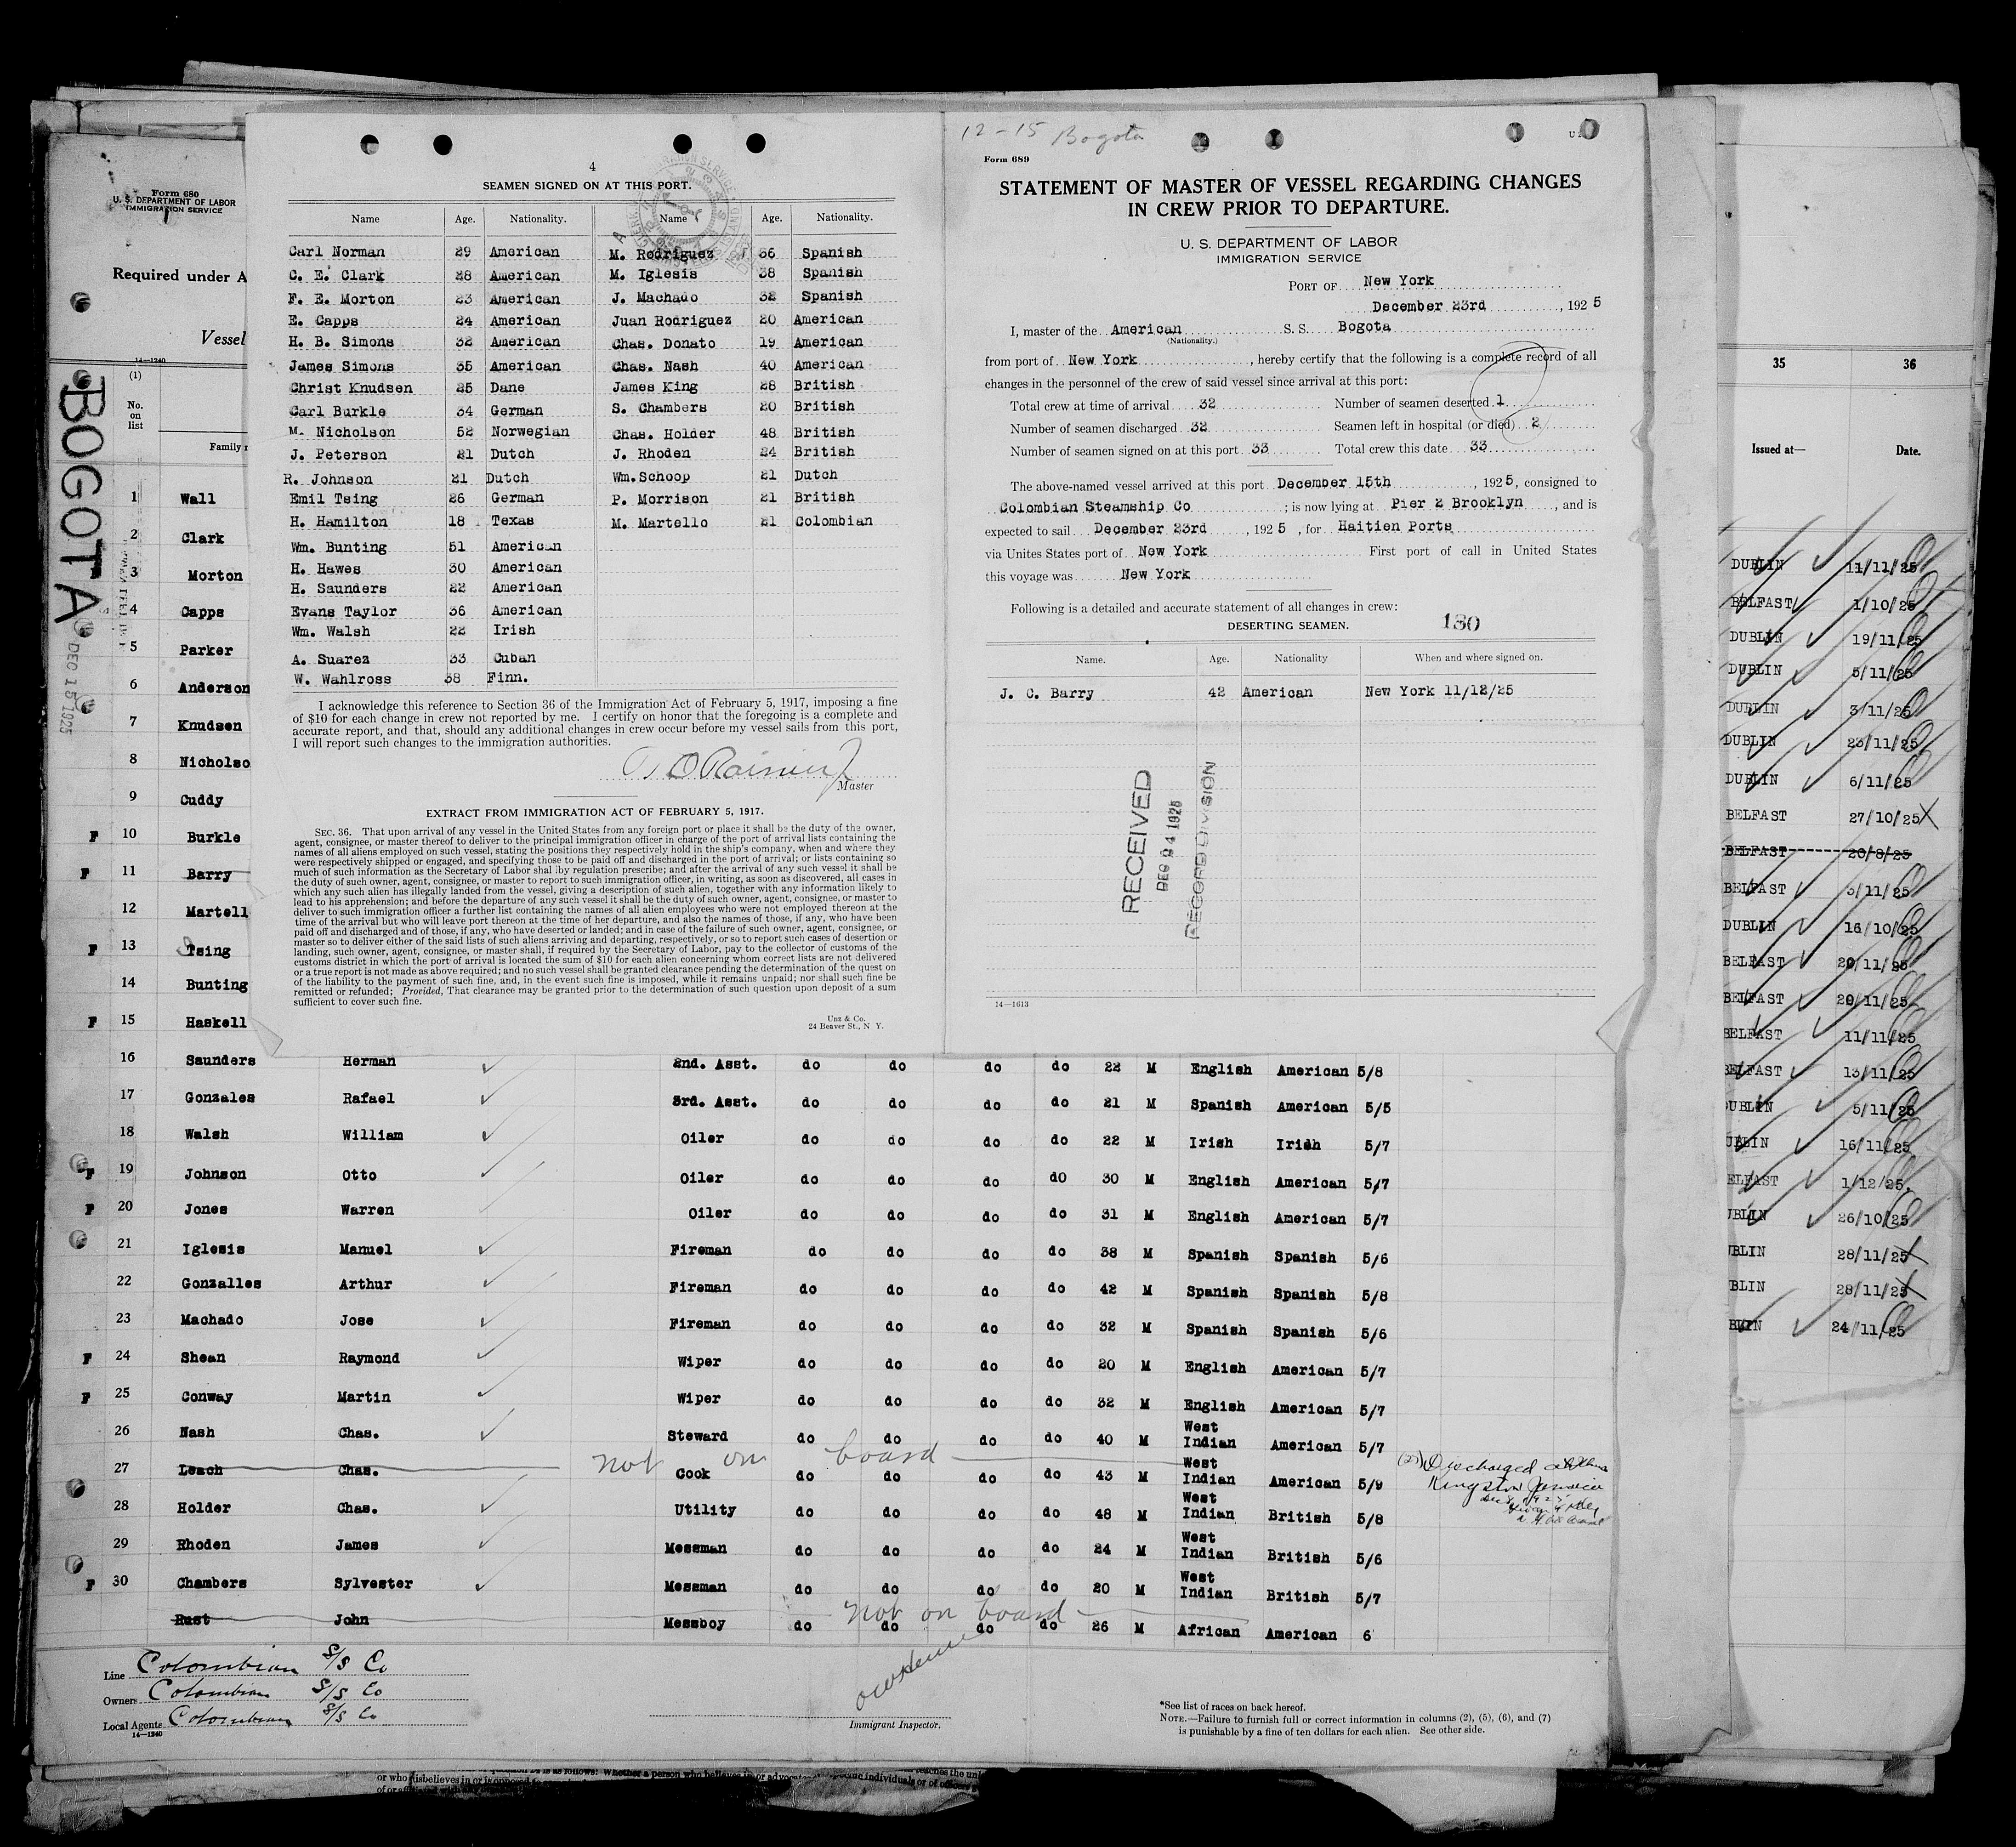 Form 680
U. S. DEPARTMENT OF LABOR
IMMIGRATION SERVICE
Required under A
Vessel
14—1240
(1)
No.
on
list
Family
BOGOTA
DEC 15 1925
1 Wall
2 Clark
3 Morton
4 Capps
5 Parker
6 Anderson
7 Knudsen
8 Nicholso
9 Cuddy
F 10 Burkle
F 11 Barry
12 Martell
F 13 Tsing
14 Bunting
F 15 Haskell
4
SEAMEN SIGNED ON AT THIS PORT.
Name Age. Nationality. Name Age. Nationality.
Carl Norman 29 American M. Rodriguez 36 Spanish
C. E. Clark 28 American M. Iglesis 38 Spanish
F. E. Morton 23 American J. Machado 32 Spanish
E. Capps 24 American Juan Rodriguez 20 American
H. B. Simons 32 American Chas. Donato 19 American
James Simons 35 American Chas. Nash 40 American
Christ Knudsen 25 Dane James King 28 British
Carl Burkle 34 German S. Chambers 20 British
M. Nicholson 52 Norwegian Chas. Holder 48 British
J. Peterson 21 Dutch J. Rhoden 24 British
R. Johnson 21 Dutch Wm.Schoop 21 Dutch
Emil Tsing 26 German P. Morrison 21 British
H. Hamilton 18 Texas M. Martello 21 Colombian
Wm. Bunting 51 American
H. Hawes 30 American
H. Saunders 22 American
Evans Taylor 36 American
Wm. Walsh 22 Irish
A. Suarez 33 Cuban
W. Wahlross 38 Finn.
I acknowledge this reference to Section 36 of the Immigration Act of February 5, 1917, imposing a fine
of $10 for each change in crew not reported by me. I certify on honor that the foregoing is a complete and
accurate report, and that, should any additional changes in crew occur before my vessel sails from this port,
I will report such changes to the immigration authorities.
Master
EXTRACT FROM IMMIGRATION ACT OF FEBRUARY 5, 1917.
SEC. 36. That upon arrival of any vessel in the United States from any foreign port or place it shall be the duty of the owner,
agent, consignee, or master thereof to deliver to the principal immigration officer in charge of the port of arrival lists containing the
names of all aliens employed on such vessel, stating the positions they respectively hold in the ship's company, when and where they
were respectively shipped or engaged, and specifying those to be paid off and discharged in the port of arrival; or lists containing so
much of such information as the Secretary of Labor shal by regulation prescribe; and after the arrival of any such vessel it shall be
the duty of such owner, agent, consignee, or master to report to such immigration officer, in writing, as soon as discovered, all cases in
which any such alien has illegally landed from the vessel, giving a description of such alien, together with any information likely to
lead to his apprehension; and before the departure of any such vessel it shall be the duty of such owner, agent, consignee, or master to
deliver to such immigration officer a further list containing the names of all alien employees who were not employed thereon at the
time of the arrival but who will leave port thereon at the time of her departure, and also the names of those, if any, who have been
paid off and discharged and of those, if any, who have deserted or landed; and in case of the failure of such owner, agent, consignee, or
master so to deliver either of the said lists of such aliens arriving and departing, respectively, or so to report such cases of desertion or
landing, such owner, agent, consignee, or master shall, if required by the Secretary of Labor, pay to the collector of customs of the
customs district in which the port of arrival is located the sum of $10 for each alien concerning whom correct lists are not delivered
or a true report is not made as above required; and no such vessel shall be granted clearance pending the determination of the quest on
of the liability to the payment of such fine, and, in the event such fine is imposed, while it remains unpaid; nor shall such fine be
remitted or refunded; Provided, That clearance may be granted prior to the determination of such question upon deposit of a sum
sufficient to cover such fine.
Unz & Co.
24 Beaver St., N Y.
12-15 Bogota
Form 689
STATEMENT OF MASTER OF VESSEL REGARDING CHANGES
IN CREW PRIOR TO DEPARTURE.
U. S. DEPARTMENT OF LABOR
IMMIGRATION SERVICE
PORT OF New York
December 23rd, 1925
I, master of the American S. S. Bogota
(Nationality.)
from port of New York, hereby certify that the following is a complete record of all
changes in the personnel of the crew of said vessel since arrival at this port:
Total crew at time of arrival 32 Number of seamen deserted 1
Number of seamen discharged 32 Seamen left in hospital (or died) 2
Number of seamen signed on at this port 33 Total crew this date 33
The above-named vessel arrived at this port December 15th, 1925, consigned to
Colombian Steamship Co; is now lying at Pier 2 Brooklyn, and is
expected to sail December 23rd, 1925, for Haitien Ports
via Unites States port of New York First port of call in United States
this voyage was New York
Following is a detailed and accurate statement of all changes in crew:
DESERTING SEAMEN. 130
Name. Age. Nationality When and where signed on.
J. C. Barry 42 American New York 11/12/25
RECEIVED
DEC 24 1925
RECORD DIVISION
14—1613
16 Saunders Herman 2nd. Asst. do do do do 22 M English American 5/8
17 Gonzales Rafael 3rd. Asst. do do do do 21 M Spanish American 5/5
18 Walsh William Oiler do do do do 22 M Irish Irish 5/7
F 19 Johnson Otto Oiler do do do do 30 M English American 5/7
F 20 Jones Warren Oiler do do do do 31 M English American 5/7
21 Iglesis Manuel Fireman do do do do 38 M Spanish Spanish 5/6
22 Gonzalles Arthur Fireman do do do do 42 M Spanish Spanish 5/8
23 Machado Jose Fireman do do do do 32 M Spanish Spanish 5/6
F 24 Shean Raymond Wiper do do do do 20 M English American 5/7
F 25 Conway Martin Wiper do do do do 32 M English American 5/7
26 Nash Chas. Steward do do do do 40 M West Indian American 5/7
not on board
27 Leach Chas. Cook do do do do 43 M West Indian American 5/9
Discharged
Kingston Jamaica
28 Holder Chas. Utility do do do do 48 M West Indian British 5/8
29 Rhoden James Messman do do do do 24 M West Indian British 5/6
F 30 Chambers Sylvester Messman do do do do 20 M West Indian British 5/7
not on board
Rust John Messboy do do do do 26 M African American 6
Line Colombian S/S Co
Owners Colombian S/S Co
Local Agents Colombian S/S Co
14—1240
Immigrant Inspector.
*See list of races on back hereof.
NOTE.—Failure to furnish full or correct information in columns (2), (5), (6), and (7)
is punishable by a fine of ten dollars for each alien. See other side.
35 36
Issued at— Date.
DUBLIN 11/11/25
BELFAST 1/10/25
DUBLIN 19/11/25
DUBLIN 5/11/25
DUBLIN 3/11/25
DUBLIN 23/11/25
DUBLIN 6/11/25
BELFAST 27/10/25
BELFAST 20/8/25
BELFAST 5/11/25
DUBLIN 16/10/25
BELFAST 20/11/25
BELFAST 20/11/25
BELFAST 11/11/25
BELFAST 13/11/25
DUBLIN 5/11/25
UBLIN 16/11/25
ELFAST 1/12/25
UBLIN 26/10/25
UBLIN 28/11/25
BLIN 28/11/25
BLIN 24/11/25